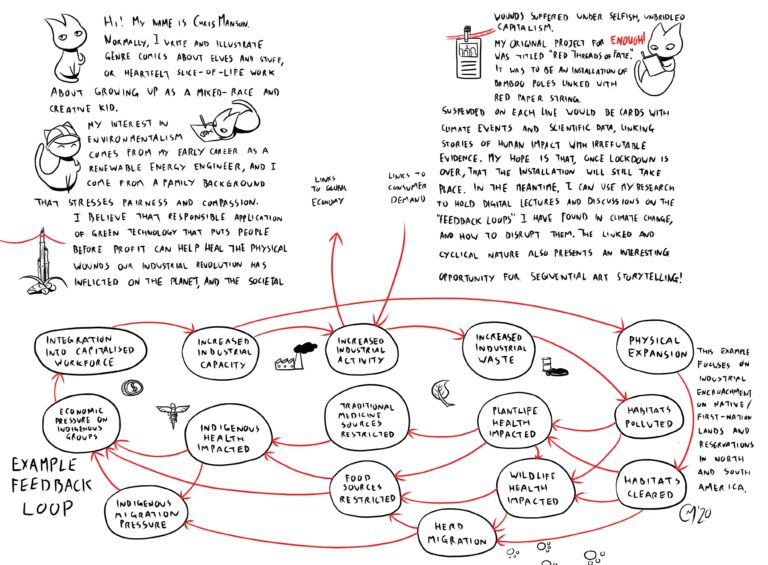 Hi! My name is Chris Manson.
Normally, I write and illustrate
genre comics about elves and stuff,
or heartfelt slice-of-life work
about growing up as a mixed-race and
creative kid.
My interest in
environmentalism
comes from my early career as a
renewable energy engineer, and I
come from a family background
that stresses fairness and compassion.
I believe that responsible application
of green technology that puts people
before profit can help heal the physical
wounds our industrial revolution has
inflicted on the planet, and the societal
wounds suffered under selfish, unbridled
capitalism.
My original project for ENOUGH!
was titled "Red Threads of Fate."
It was to be an installation of
bamboo poles linked with
red paper string.
Suspended on each line would be cards with
climate events and scientific data, linking
stories of human impact with irrefutable
evidence. My hope is that, once lockdown is
over, that the installation will still take
place. In the meantime, I can use my research
to hold digital lectures and discussions on the
"feedback loops" I have found in climate change,
and how to disrupt them. The linked and
cyclical nature also presents an interesting
opportunity for sequential art storytelling!
Links
to global
economy
Links to
consumer
demand
Integration
into capitalised
workforce
Increased
industrial
capacity
Increased
industrial
activity
Increased
industrial
waste
Physical
expansion
This example
focuses on
industrial
encroachment
on native/
first-nation
lands and
reservations
in North
and South
America.
Economic
pressure on
indigenous
groups
Indigenous
health
impacted
Traditional
medicine
sources
restricted
Plantlife
health
impacted
Habitats
polluted
Example
feedback
loop
Indigenous
migration
pressure
Food
sources
restricted
Wildlife
health
impacted
Habitats
cleared
Herd
migration
CM'20